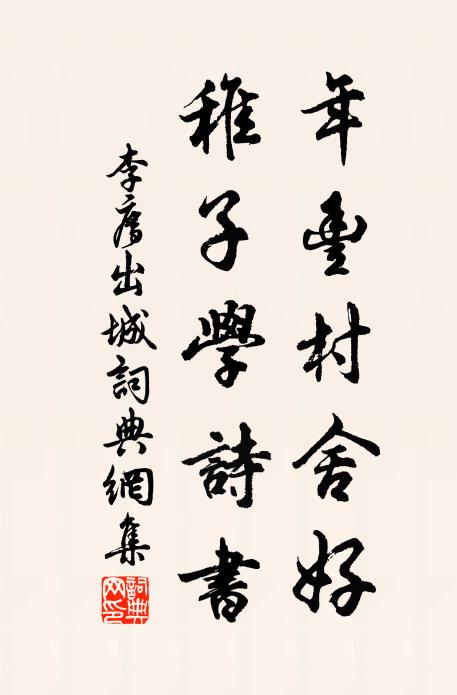 年豐村舍好
稚子學詩書
李廌出城詞典網集
詞典網印